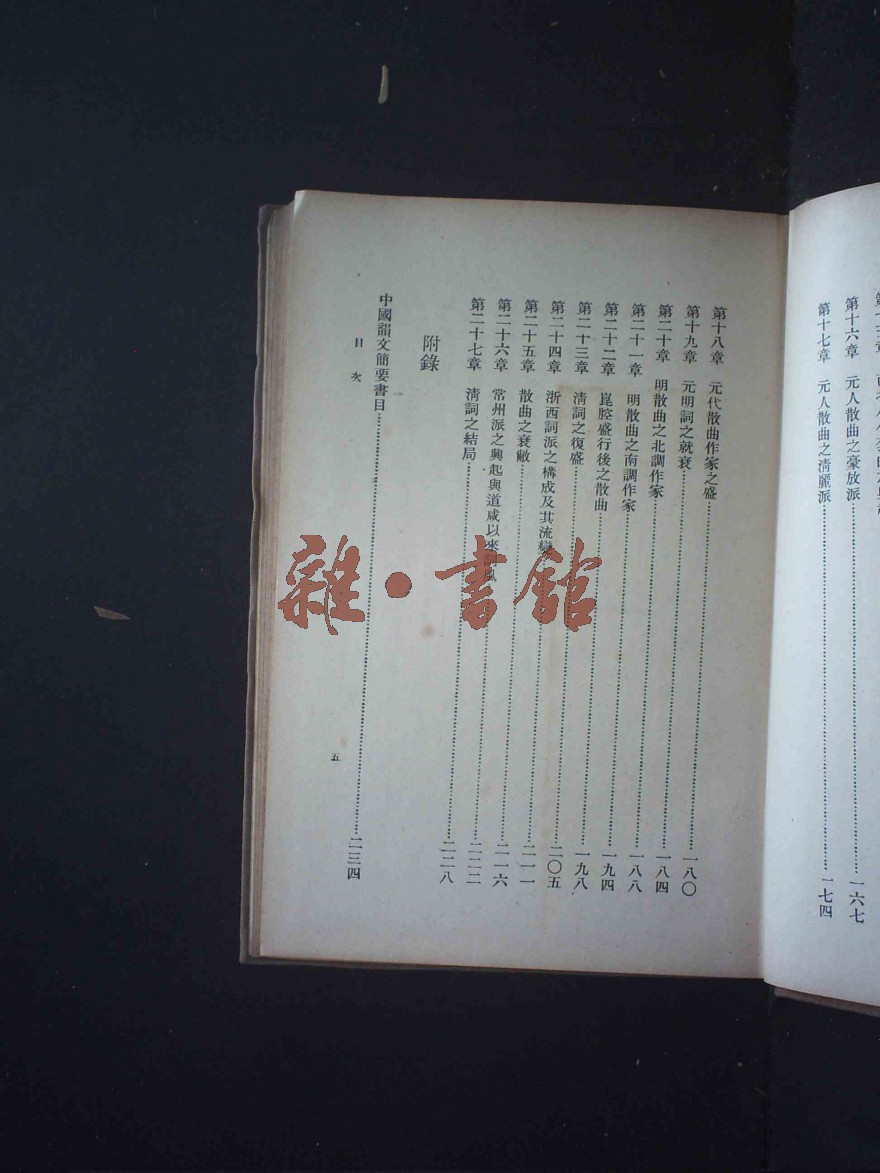 第十六章 元人散曲之豪放派……一六七
第十七章 元人散曲之清麗派……一七四
第十八章 元代散曲作家之盛……一八〇
第十九章 元明詞之就衰……一八四
第二十章 明散曲之北調作家……一八八
第二十一章 明散曲之南調作家……一九四
第二十二章 崑腔盛行後之散曲……一九八
第二十三章 清詞之復盛……二〇五
第二十四章 浙西詞派之構成及其流變……二一一
第二十五章 散曲之衰敝……二一六
第二十六章 常州派之興起與道咸以來詞風……二二二
第二十七章 清詞之結局……二二八
附錄
中國韻文簡要書目……二三四
目次
五
雜·書館